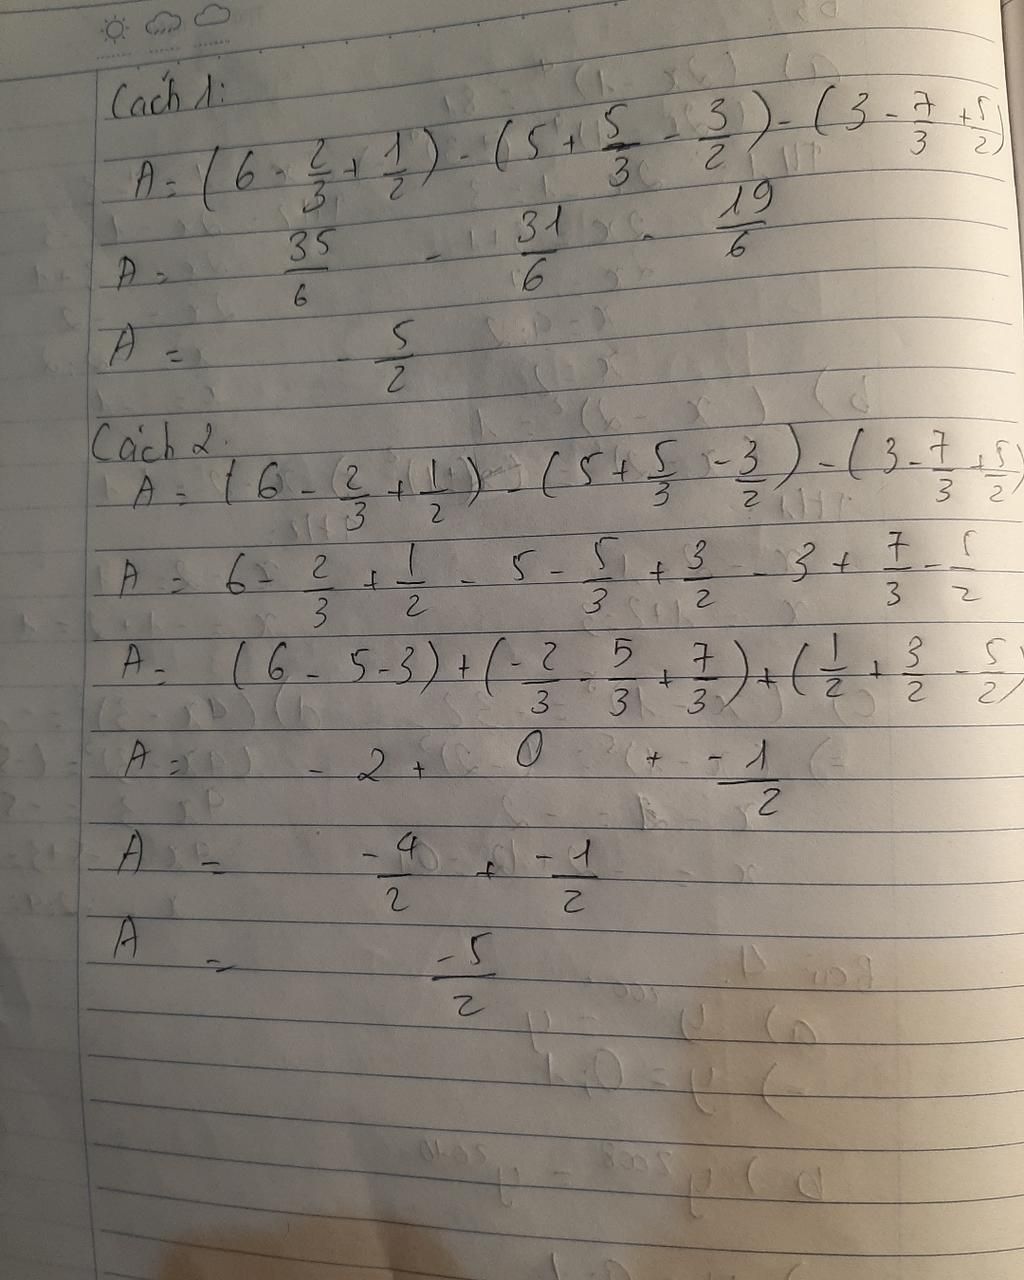 Cách 1:
A = (6 - 2/3 + 1/2) - (5 + 5/3 - 3/2) - (3 - 7/3 + 5/2)
A = 35/6 - 31/6 - 19/6
A = - 5/2
Cách 2:
A = (6 - 2/3 + 1/2) - (5 + 5/3 - 3/2) - (3 - 7/3 + 5/2)
A = 6 - 2/3 + 1/2 - 5 - 5/3 + 3/2 - 3 + 7/3 - 5/2
A = (6 - 5 - 3) + (- 2/3 - 5/3 + 7/3) + (1/2 + 3/2 - 5/2)
A = - 2 + 0 + -1/2
A = -4/2 + -1/2
A = -5/2